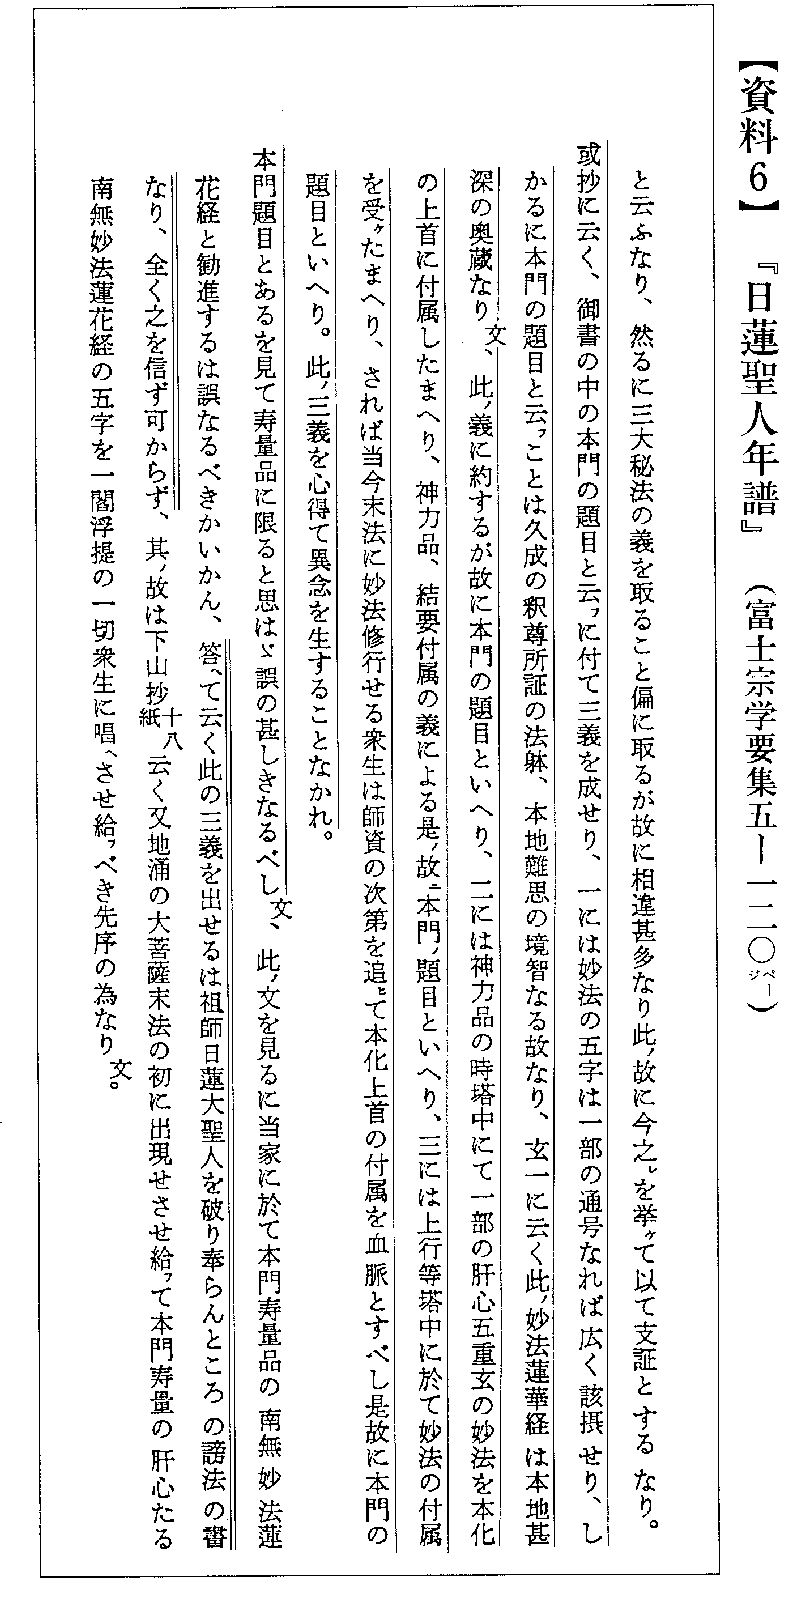 【資料６】 『日蓮聖人年譜』 （富士宗学要集五ー一二〇ページ）
と云ふなり、然るに三大秘法の義を取ること偏に取るが故に相違甚多なり此ノ故に今之レを挙ケて以て支証とするなり。
或抄に云く、御書の中の本門の題目と云フに付て三義を成せり、一には妙法の五字は一部の通号なれば広く該摂せり、し
かるに本門の題目と云フことは久成の釈尊所証の法躰、本地難思の境智なる故なり、玄一に云く此ノ妙法蓮華経は本地甚
深の奥蔵なり文、此ノ義に約するが故に本門の題目といへり、二には神力品の時塔中にて一部の肝心五重玄の妙法を本化
の上首に付属したまへり、神力品、結要付属の義による是ノ故ニ本門ノ題目といへり、三には上行等塔中に於て妙法の付属
を受ケたまへり、されば当今末法に妙法修行せる衆生は師資の次第を追ヒて本化上首の付属を血脈とすべし是故に本門の
題目といへり。此ノ三義を心得て異念を生することなかれ。
本門題目とあるを見て寿量品に限ると思はゞ誤の甚しきなるべし文、此ノ文を見るに当家に於て本門寿量品の南無妙法蓮
花経と勧進するは誤なるべきかいかん、答へて云く此の三義を出せるは祖師日蓮大聖人を破り奉らんところの謗法の書
なり、全く之を信ず可からず、其ノ故は下山抄十八紙云く又地涌の大菩薩末法の初に出現せさせ給ツて本門寿量の肝心たる
南無妙法蓮花経の五字を一閻浮提の一切衆生に唱へさせ給フべき先序の為なり文。